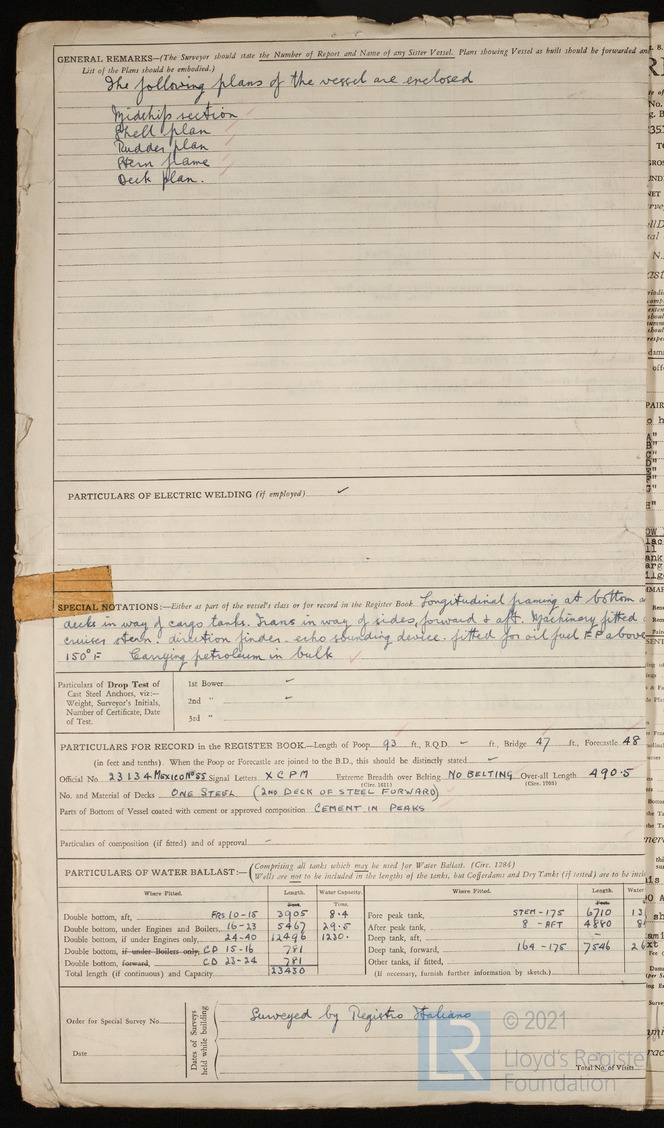 GENERAL REMARKS—(The Surveyor should state the Number of Report and Name of any Sister Vessel. Plans showing Vessel as built should be forwarded and
List of the Plans should be embodied.)
The following plans of the vessel are enclosed
Midship section
Shell plan
Rudder plan
Stern frame
Deck plan.
PARTICULARS OF ELECTRIC WELDING (if employed) ✓
SPECIAL NOTATIONS:—Either as part of the vessel's class or for record in the Register Book. Longitudinal framing at bottom &
decks in way of cargo tanks. Trans in way of sides, forward & aft. Machinery fitted
cruiser stern. direction finder. echo sounding device. fitted for oil fuel F.P. above
150°F Carrying petroleum in bulk
Particulars of Drop Test of
Cast Steel Anchors, viz:—
Weight, Surveyor's Initials,
Number of Certificate, Date
of Test.
1st Bower
2nd "
3rd "
PARTICULARS FOR RECORD in the REGISTER BOOK.—Length of Poop 93 ft., R.Q.D. – ft., Bridge 47 ft., Forecastle 48
(in feet and tenths). When the Poop or Forecastle are joined to the B.D., this should be distinctly stated
Official No. 23134 MEXICO No 55 Signal Letters XCPM Extreme Breadth over Belting NO BELTING Over-all Length 490.5
(Circ. 1611) (Circ. 1703)
No. and Material of Decks ONE STEEL (2ND DECK OF STEEL FORWARD)
Parts of Bottom of Vessel coated with cement or approved composition CEMENT IN PEAKS
Particulars of composition (if fitted) and of approval –
PARTICULARS OF WATER BALLAST:— (Comprising all tanks which may be used for Water Ballast. (Circ. 1284)
Wells are not to be included in the lengths of the tanks, but Cofferdams and Dry Tanks (if tested) are to be incl
Where Fitted. Length. Water Capacity. Where Fitted. Length. Water
Feet. Tons. Feet.
Double bottom, aft, FRS 10-15 3905 8.4 Fore peak tank, STEM-175 6710 13
Double bottom, under Engines and Boilers, 16-23 5467 29.5 After peak tank, 8 - AFT 4880 8
Double bottom, if under Engines only, 24-40 12496 1230. Deep tank, aft, –
Double bottom, if under Boilers only, CD 15-16 781 Deep tank, forward, 164-175 7546
Double bottom, forward, CD 23-24 781 Other tanks, if fitted,
Total length (if continuous) and Capacity 23430 (If necessary, furnish further information by sketch.)
Order for Special Survey No.
Date
Dates of Surveys
held while building
Surveyed by Registro Italiano
Total No. of Visits
LR
© 2021
Lloyd's Register
Foundation